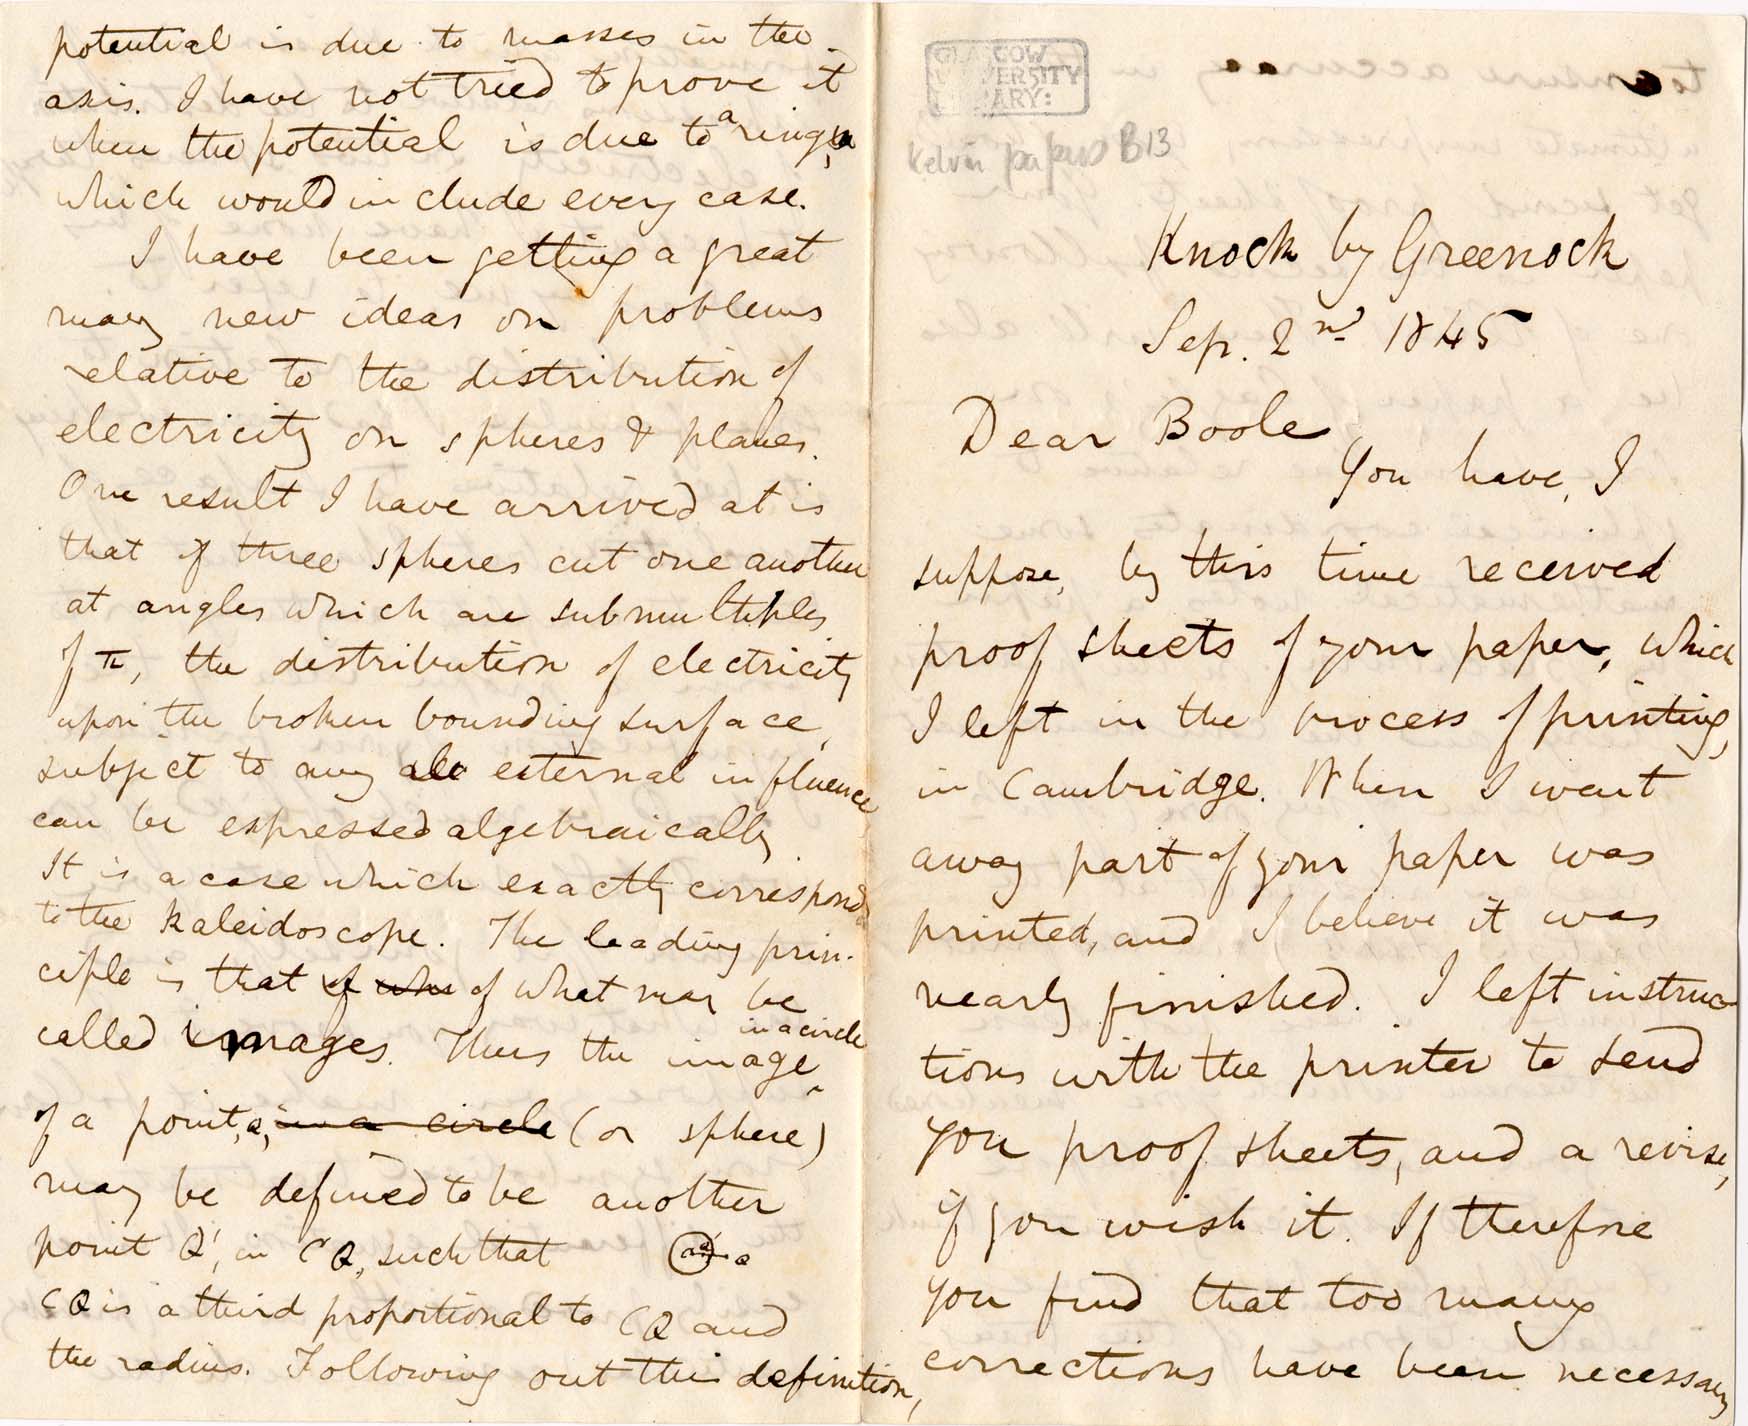 potential is due to masses in the
axis. I have not tried to prove it
when the potential is due to a ring,
which would include every case.
I have been getting a great
many new ideas on problems
relative to the distribution of
electricity on spheres & planes.
One result I have arrived at is
that if three spheres cut one another
at angles which are submultiples
of π, the distribution of electricity
upon the broken bounding surface,
subject to any external influence
can be expressed algebraically
It is a case which exactly corresponds
to the kaleidoscope. The leading prin-
ciple is that if of what may be
called images. Thus the image in a circle
of a point, Q, in a circle (or sphere)
may be defined to be another
point Q', in CQ, such that
CQ is a third proportional to CQ and
the radius. Following out this definition,
GLASGOW
UNIVERSITY
LIBRARY:
Kelvin papers B13
Knock by Greenock
Sep. 2nd 1845
Dear Boole
You have, I
suppose, by this time received
proof sheets of your paper, which
I left in the process of printing,
in Cambridge. When I went
away part of your paper was
printed, and I believe it was
nearly finished. I left instruc
tions with the printer to send
you proof sheets, and a revise,
if you wish it. If therefore
you find that too many
corrections have been necessary